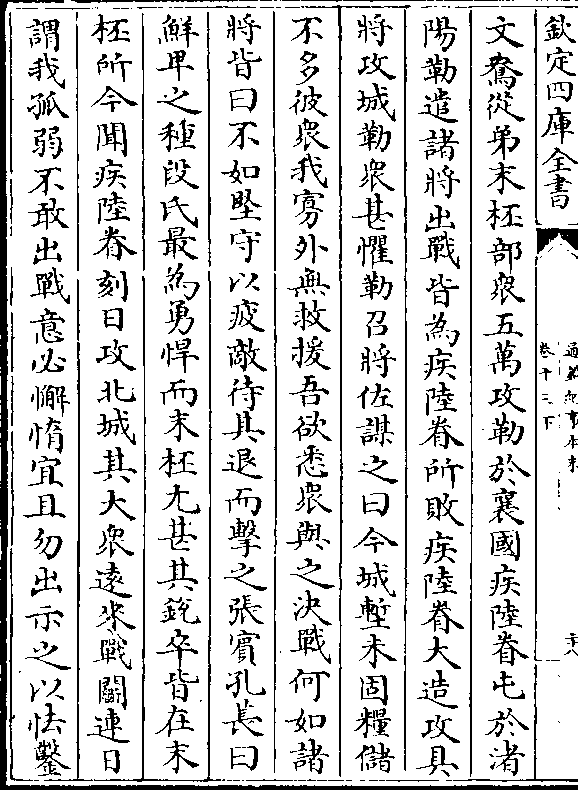 欽定四庫全書
通鑑紀事本末
卷十三下
文鴦從弟末柸部衆五萬攻勒於襄國疾陸眷屯於渚
陽勒遣諸將出戰皆為疾陸眷所敗疾陸眷大造攻具
將攻城勒衆甚懼勒召將佐謀之曰今城塹未固糧儲
不多彼衆我寡外無救援吾欲悉衆與之決戰何如諸
將皆曰不如堅守以疲敵待其退而擊之張賓孔萇曰
鮮卑之種段氏最為勇悍而末柸尤甚其銳卒皆在末
柸所今聞疾陸眷刻日攻北城其大衆遠來戰鬬連日
謂我孤弱不敢出戰意必懈惰宜且勿出示之以怯鑿